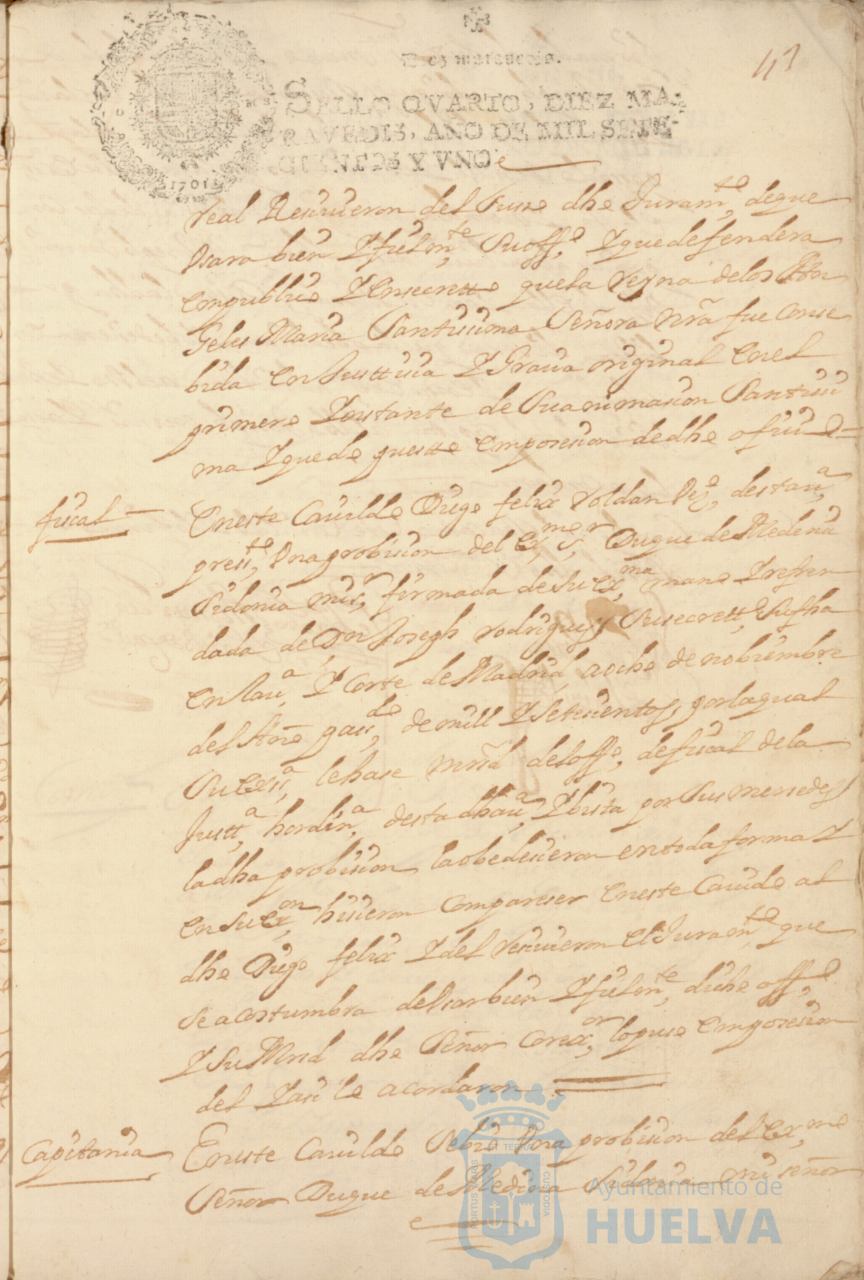 Diez maravedis.
SELLO QVARTO, DIEZ MA-
RAVEDIS, AÑO DE MIL SETE-
CIENTOS Y VNO
1701
real Resiuieron del Suso dho Juramto, deque
Vsara bien Y fielmte, Su offo, Y que defendera
en publico Y en secretto que la Reyna de los An
Geles Maria Santissima Señora nra fue conse
bida en Justticia Y Gracia original en el
primero Ynstante de Su animasion Santisi
ma Y quedo puestto en posesion de dho ofisio=
fiscal
En este Cauildo Diego felix Roldan Vzo, desta va,
presto, Vna probision del exmo Sr, Duque de Medina
Sidonia mi sr, firmada de Su exma mano Y refren
dada de Dn Joseph Rodriguez Su Secretto, Su fha
en la va, Y Corte de Madrid a ocho de nobiembre
del Año pasdo, de mill Y Setesientos, por la qual
Su exsa, le hase mrsd del offo, de fiscal de la
Justta, hordina, desta dha va, Y bista por Sus mersedes
la dha probision la obedesieron en toda forma Y
en Su exon, hisieron Compareser en este Cauildo al
dho Diego felix Y del resiuieron el Juramto, que
Se acostumbra de Vsar bien Y fielmte, dicho offo,
Y Su Mrsd dho Señor Corexor, lo puso en posesion
del Y asi lo acordaron
Capitania
En este Cauildo Se bio Vna probision del exmo
Señor Duque de Medina Sidonia mi señor
Ayuntamiento de
HUELVA